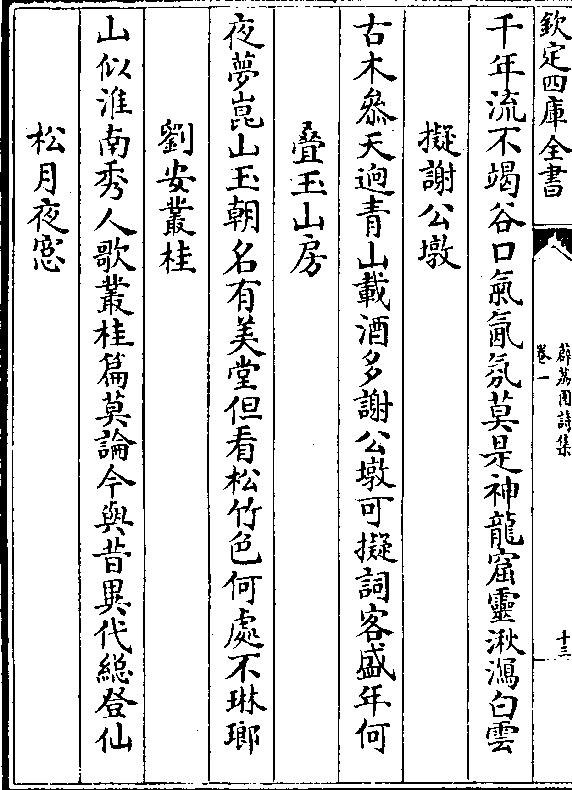 欽定四庫全書
薜荔園詩集
卷一
十三
千年流不竭谷口氣氤氛莫是神龍窟靈湫瀉白雲
擬謝公墩
古木叅天逈青山載酒多謝公墩可擬詞客盛年何
疊玉山房
夜夢崑山玉朝名有美堂但看松竹色何處不琳瑯
劉安叢桂
山似淮南秀人歌叢桂篇莫論今與昔異代總登仙
松月夜窓